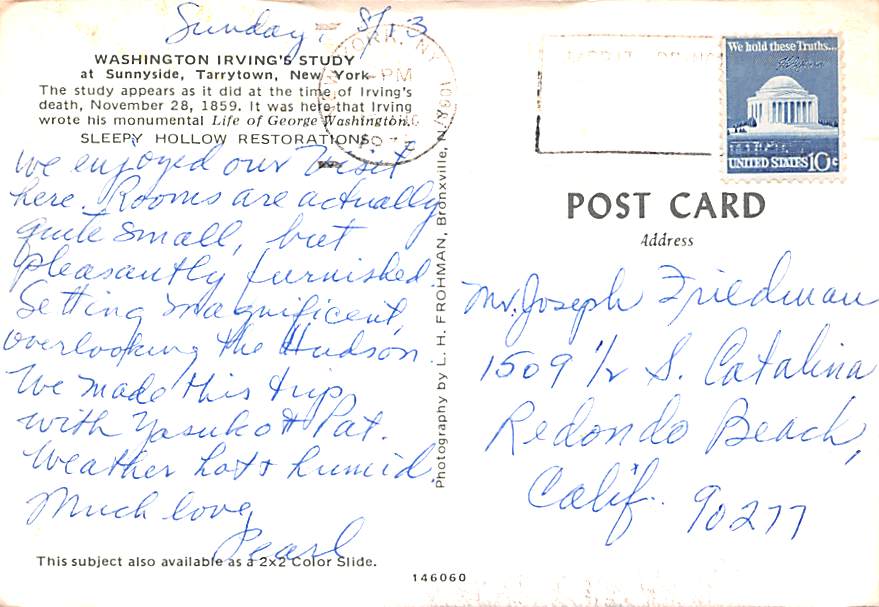 Sunday,
WASHINGTON IRVING'S STUDY
at Sunnyside, Tarrytown, New York
The study appears as it did at the time of Irving's
death, November 28, 1859. It was here that Irving
wrote his monumental Life of George Washington.
SLEEPY HOLLOW RESTORATIONS
We enjoyed our visit
here. Rooms are actually
quite small, but
pleasantly furnished.
Setting magnificent,
overlooking the Hudson.
We made this trip
with Yasuko & Pat.
Weather hot & humid.
Much love,
Pearl
This subject also available as a 2x2 Color Slide.
Photography by L. H. FROHMAN, Bronxville, N.Y.
146060
YORK, NY
PM
We hold these Truths...
UNITED STATES 10c
POST CARD
Address
Mr. Joseph Friedman
1509 1/2 S. Catalina
Redondo Beach,
Calif. 90277